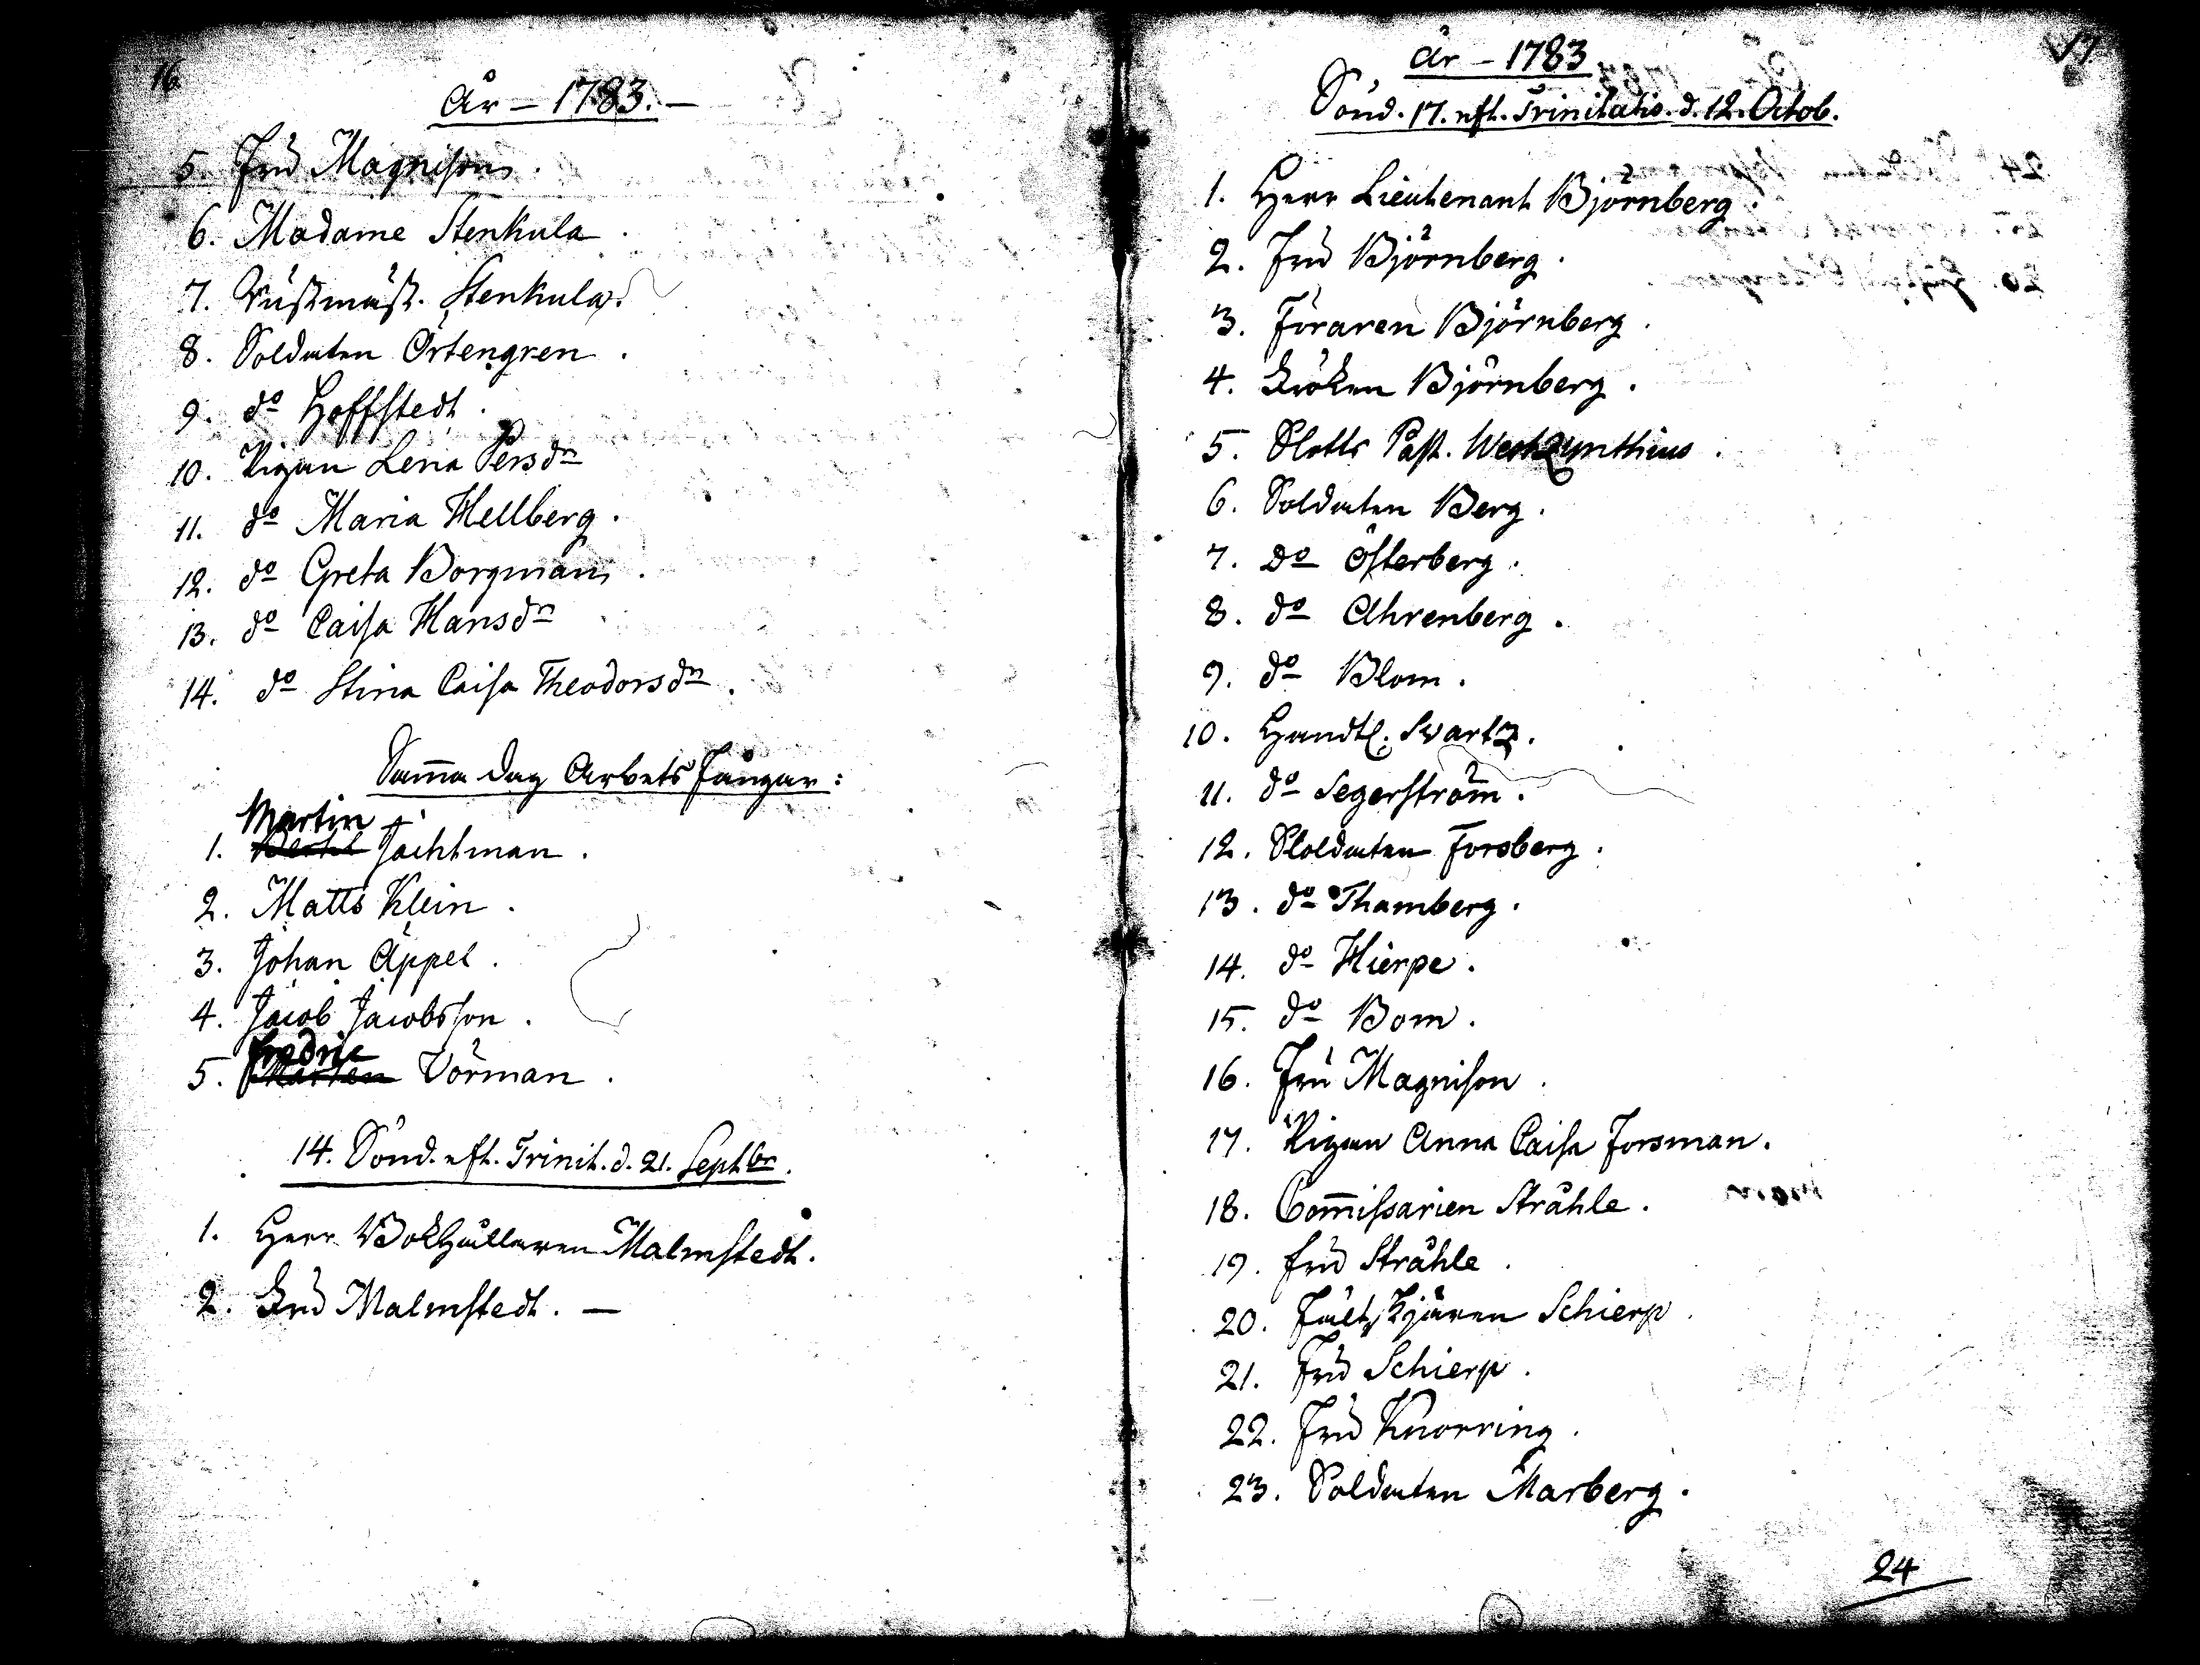 16
År – 1783. –
5. Fru Magnison.
6. Madame Stenkula.
7. Rustmäst. Stenkula.
8. Soldaten Örtengren.
9. do Hoffstedt.
10. Pigan Lena Persdn
11. do Maria Hellberg.
12. do Greta Borgman.
13. do Caisa Hansdn
14. do Stina Caisa Theodorsdn.
Samma dag Arbets fångar:
Martin
1. Bertel Jachtman.
2. Matts Klein.
3. Johan Äppel.
4. Jacob Jacobsson.
Fredric
5. Mårten Dörman.
14. Sönd. eft. Trinit. d. 21. Septbr.
1. Herr Bokhållaren Malmstedt.
2. Fru Malmstedt. –
17
År – 1783
Sönd. 17. eft. Trinitatis. d. 12. Octob.
1. Herr Lieutenant Björnberg.
2. Fru Björnberg.
3. Föraren Björnberg.
4. Fröken Björnberg.
5. Slotts Past. Westzynthius.
6. Soldaten Berg.
7. Do Österberg.
8. do Ahrenberg.
9. do Blom.
10. Handtl. Svartz.
11. do Segerström.
12. Soldaten Forsberg.
13. do Thamberg.
14. do Hierpe.
15. do Bom.
16. Fru Magnison.
17. Pigan Anna Caisa Forsman.
18. Commissarien Stråhle.
19. Fru Stråhle.
20. Fältskjären Schierp.
21. Fru Schierp.
22. Fru Knorring.
23. Soldaten Marberg.
24